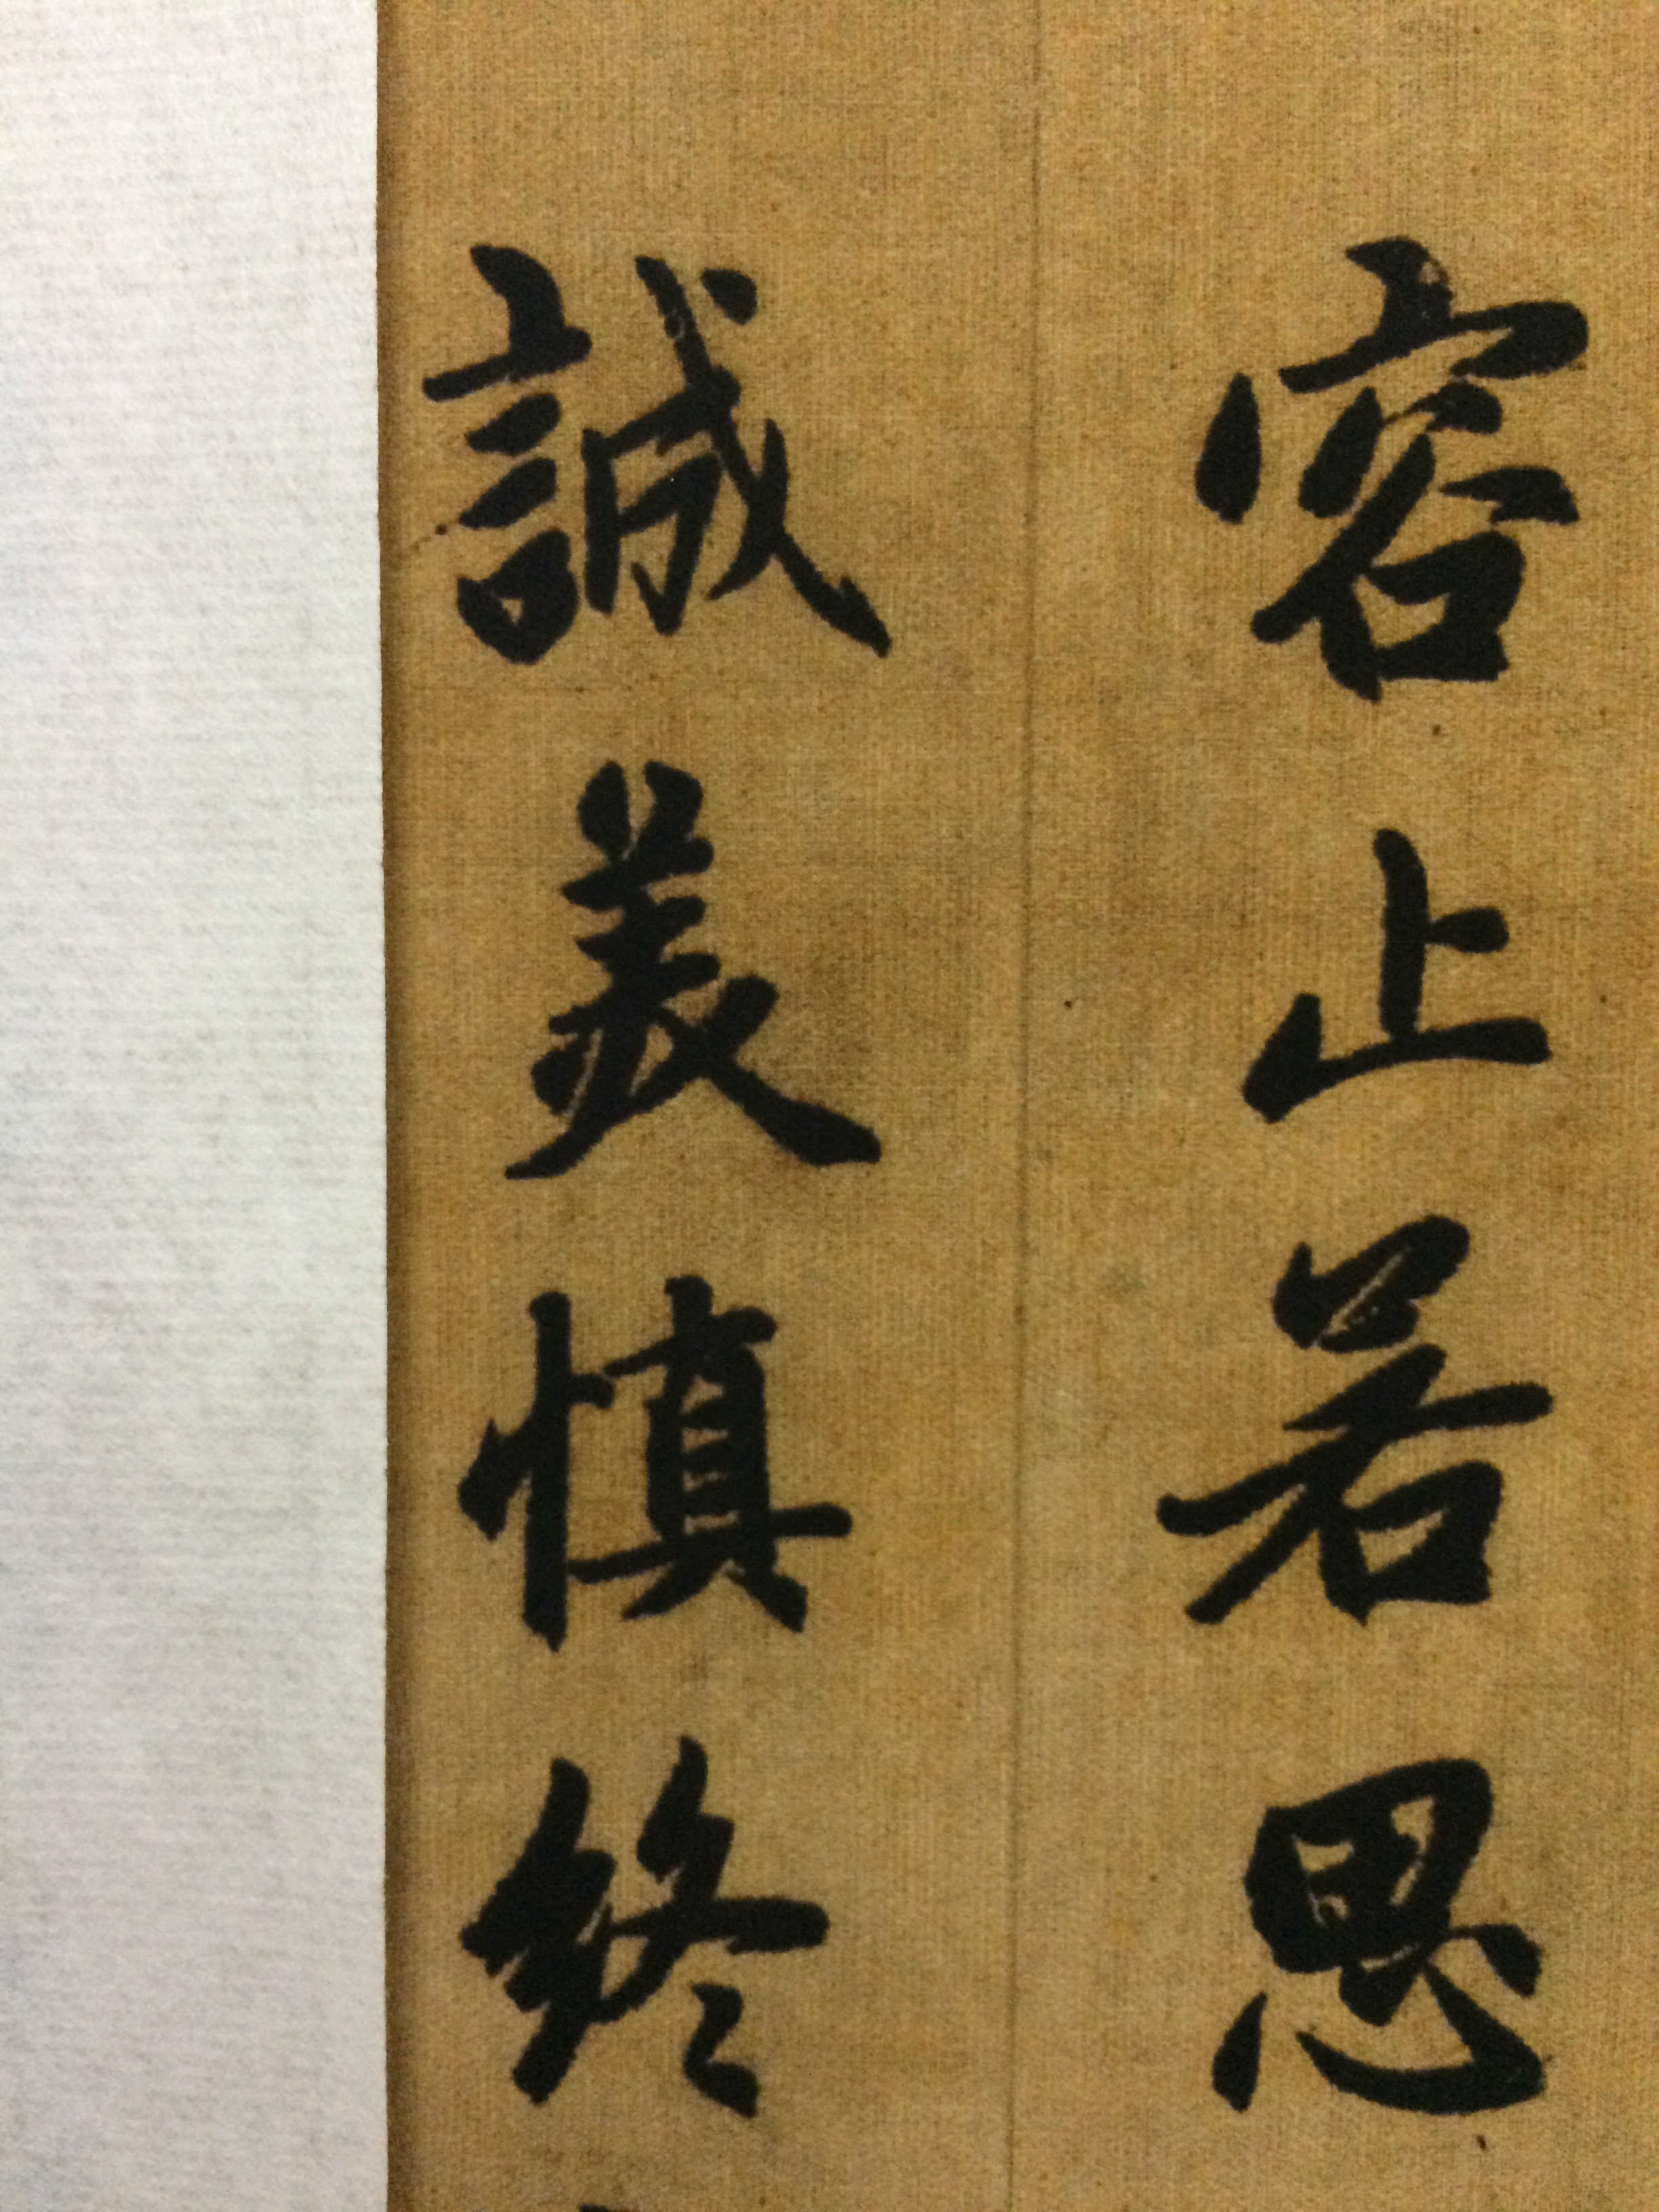 容止若思
誠美慎終